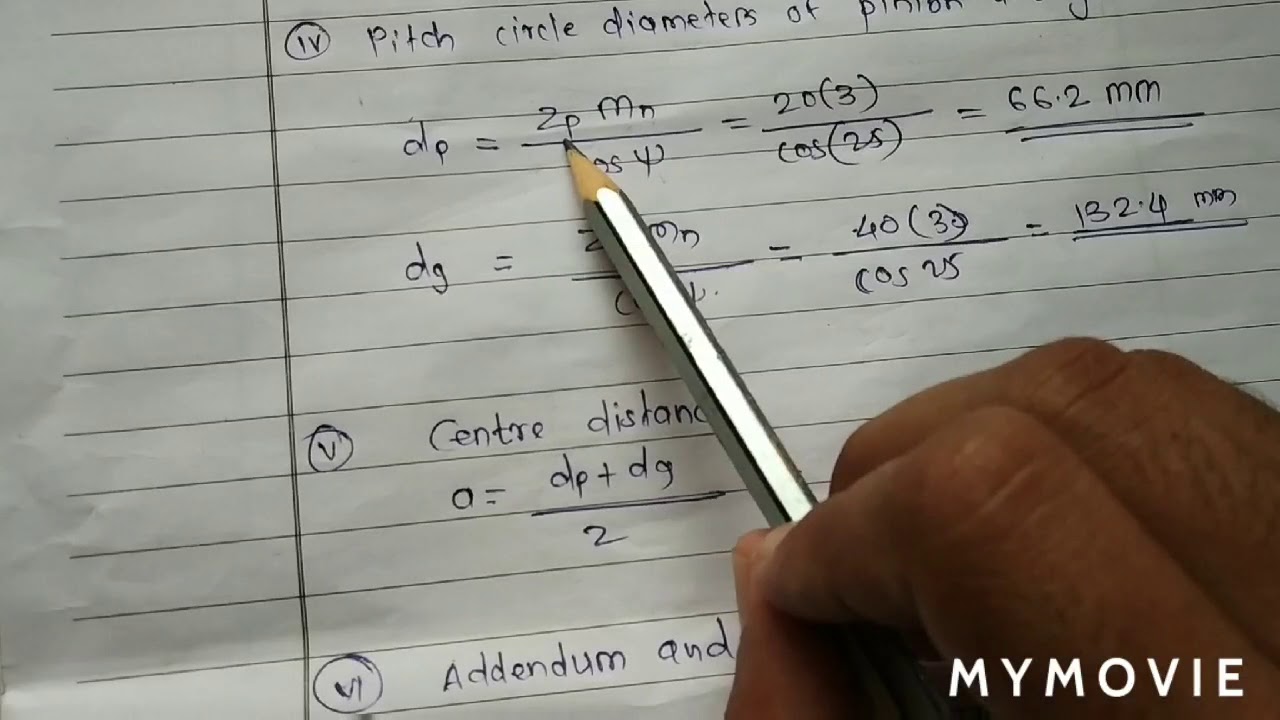 iv Pitch circle diameters of pinion
dp = zp mn / cos ψ = 20(3) / cos(25) = 66.2 mm
dg = mn / = 40(3) / cos 25 = 132.4 mm
v Centre distanc
a = dp + dg / 2
vi Addendum and
MYMOVIE